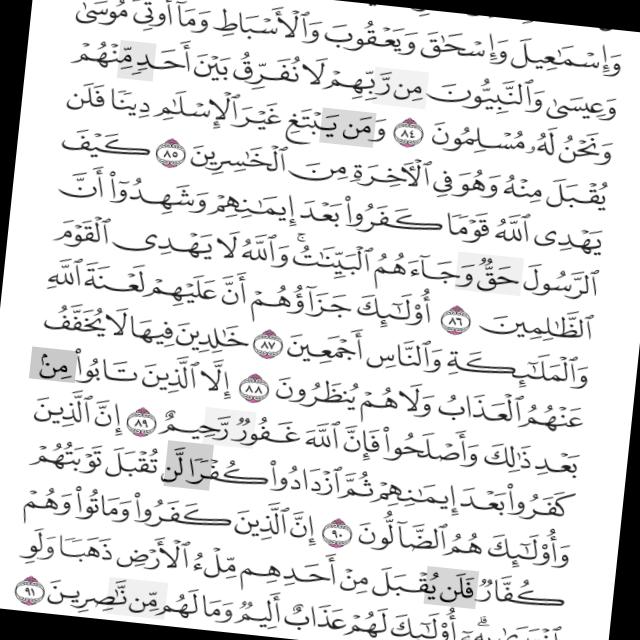 وَإِسْمَٰعِيلَ وَإِسْحَٰقَ وَيَعْقُوبَ وَٱلْأَسْبَاطِ وَمَآ أُوتِىَ مُوسَىٰ
وَعِيسَىٰ وَٱلنَّبِيُّونَ مِن رَّبِّهِمْ لَا نُفَرِّقُ بَيْنَ أَحَدٍ مِّنْهُمْ
وَنَحْنُ لَهُۥ مُسْلِمُونَ ٨٤ وَمَن يَبْتَغِ غَيْرَ ٱلْإِسْلَٰمِ دِينًا فَلَن
يُقْبَلَ مِنْهُ وَهُوَ فِى ٱلْءَاخِرَةِ مِنَ ٱلْخَٰسِرِينَ ٨٥ كَيْفَ
يَهْدِى ٱللَّهُ قَوْمًا كَفَرُوا۟ بَعْدَ إِيمَٰنِهِمْ وَشَهِدُوٓا۟ أَنَّ
ٱلرَّسُولَ حَقٌّ وَجَآءَهُمُ ٱلْبَيِّنَٰتُ ۚ وَٱللَّهُ لَا يَهْدِى ٱلْقَوْمَ
ٱلظَّٰلِمِينَ ٨٦ أُو۟لَٰٓئِكَ جَزَآؤُهُمْ أَنَّ عَلَيْهِمْ لَعْنَةَ ٱللَّهِ
وَٱلْمَلَٰٓئِكَةِ وَٱلنَّاسِ أَجْمَعِينَ ٨٧ خَٰلِدِينَ فِيهَا لَا يُخَفَّفُ
عَنْهُمُ ٱلْعَذَابُ وَلَا هُمْ يُنظَرُونَ ٨٨ إِلَّا ٱلَّذِينَ تَابُوا۟ مِنۢ
بَعْدِ ذَٰلِكَ وَأَصْلَحُوا۟ فَإِنَّ ٱللَّهَ غَفُورٌ رَّحِيمٌ ٨٩ إِنَّ ٱلَّذِينَ
كَفَرُوا۟ بَعْدَ إِيمَٰنِهِمْ ثُمَّ ٱزْدَادُوا۟ كُفْرًا لَّن تُقْبَلَ تَوْبَتُهُمْ
وَأُو۟لَٰٓئِكَ هُمُ ٱلضَّآلُّونَ ٩٠ إِنَّ ٱلَّذِينَ كَفَرُوا۟ وَمَاتُوا۟ وَهُمْ
كُفَّارٌ فَلَن يُقْبَلَ مِنْ أَحَدِهِم مِّلْءُ ٱلْأَرْضِ ذَهَبًا وَلَوِ
ٱفْتَدَىٰ بِهِۦٓ ۗ أُو۟لَٰٓئِكَ لَهُمْ عَذَابٌ أَلِيمٌ وَمَا لَهُم مِّن نَّٰصِرِينَ ٩١